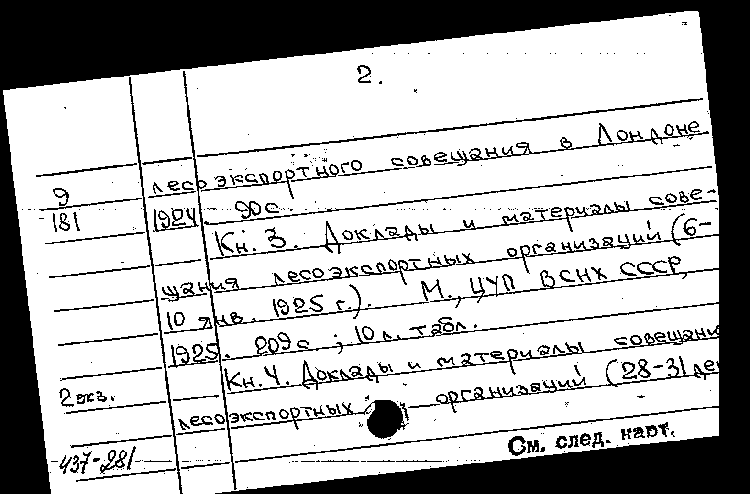 2.
лесоэкспортного совещания в Лондоне
9
181
1924. 90с.
Кн. 3. Доклады и материалы сове-
щания лесоэкспортных организаций (6-
10 янв. 1925 г.). М., ЦУП ВСНХ СССР,
1925. 209с ; 10 л. табл.
Кн. 4. Доклады и материалы совещани
2 экз.
лесоэкспортных организаций (28-31 де
437-281
См. след. карт.